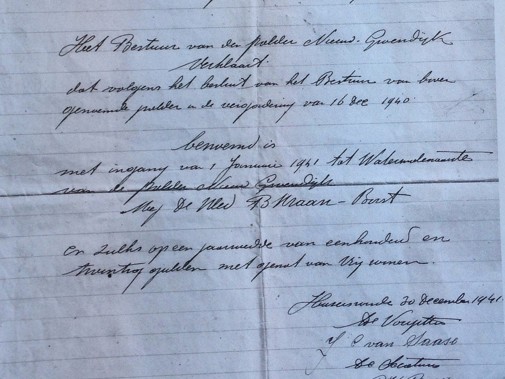 Het Bestuur van den polder Nieuw-Gwendijk
Verklaart
dat volgens het besluit van het Bestuur van boven
genoemde polder in de vergadering van 16 Dec 1940
benoemd is
met ingang van 1 Januarie 1941 tot
van de polder Nieuw Gwendijk
Mej De Wed B Kraan-Borst
en zulks op een jaarwedde van eenhonderd en
twintig gulden met genot van vrij wonen.
30 December 1941
De Voorzitter
J C van
De